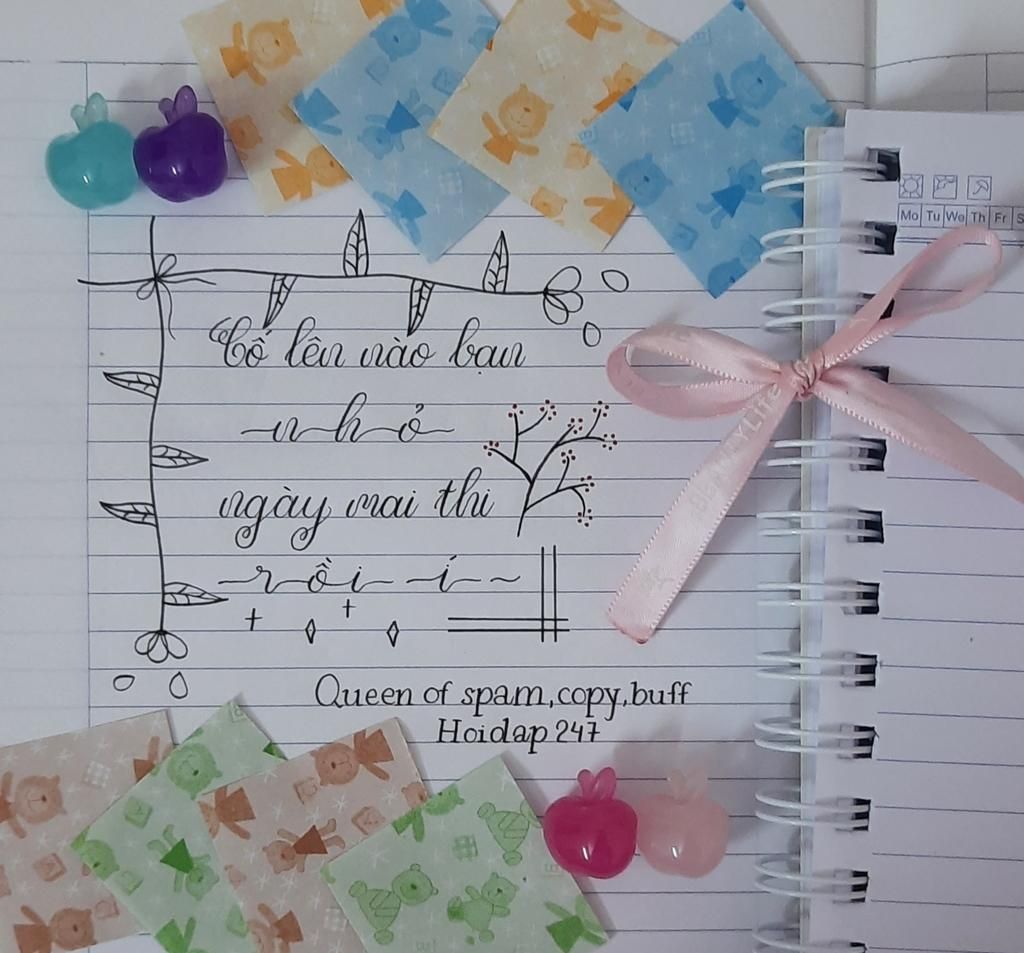 Mo Tu We Th Fr S
Cố lên nào bạn
nhỏ
ngày mai thi
rồi í ~
Queen of spam,copy,buff
Hoidap 247